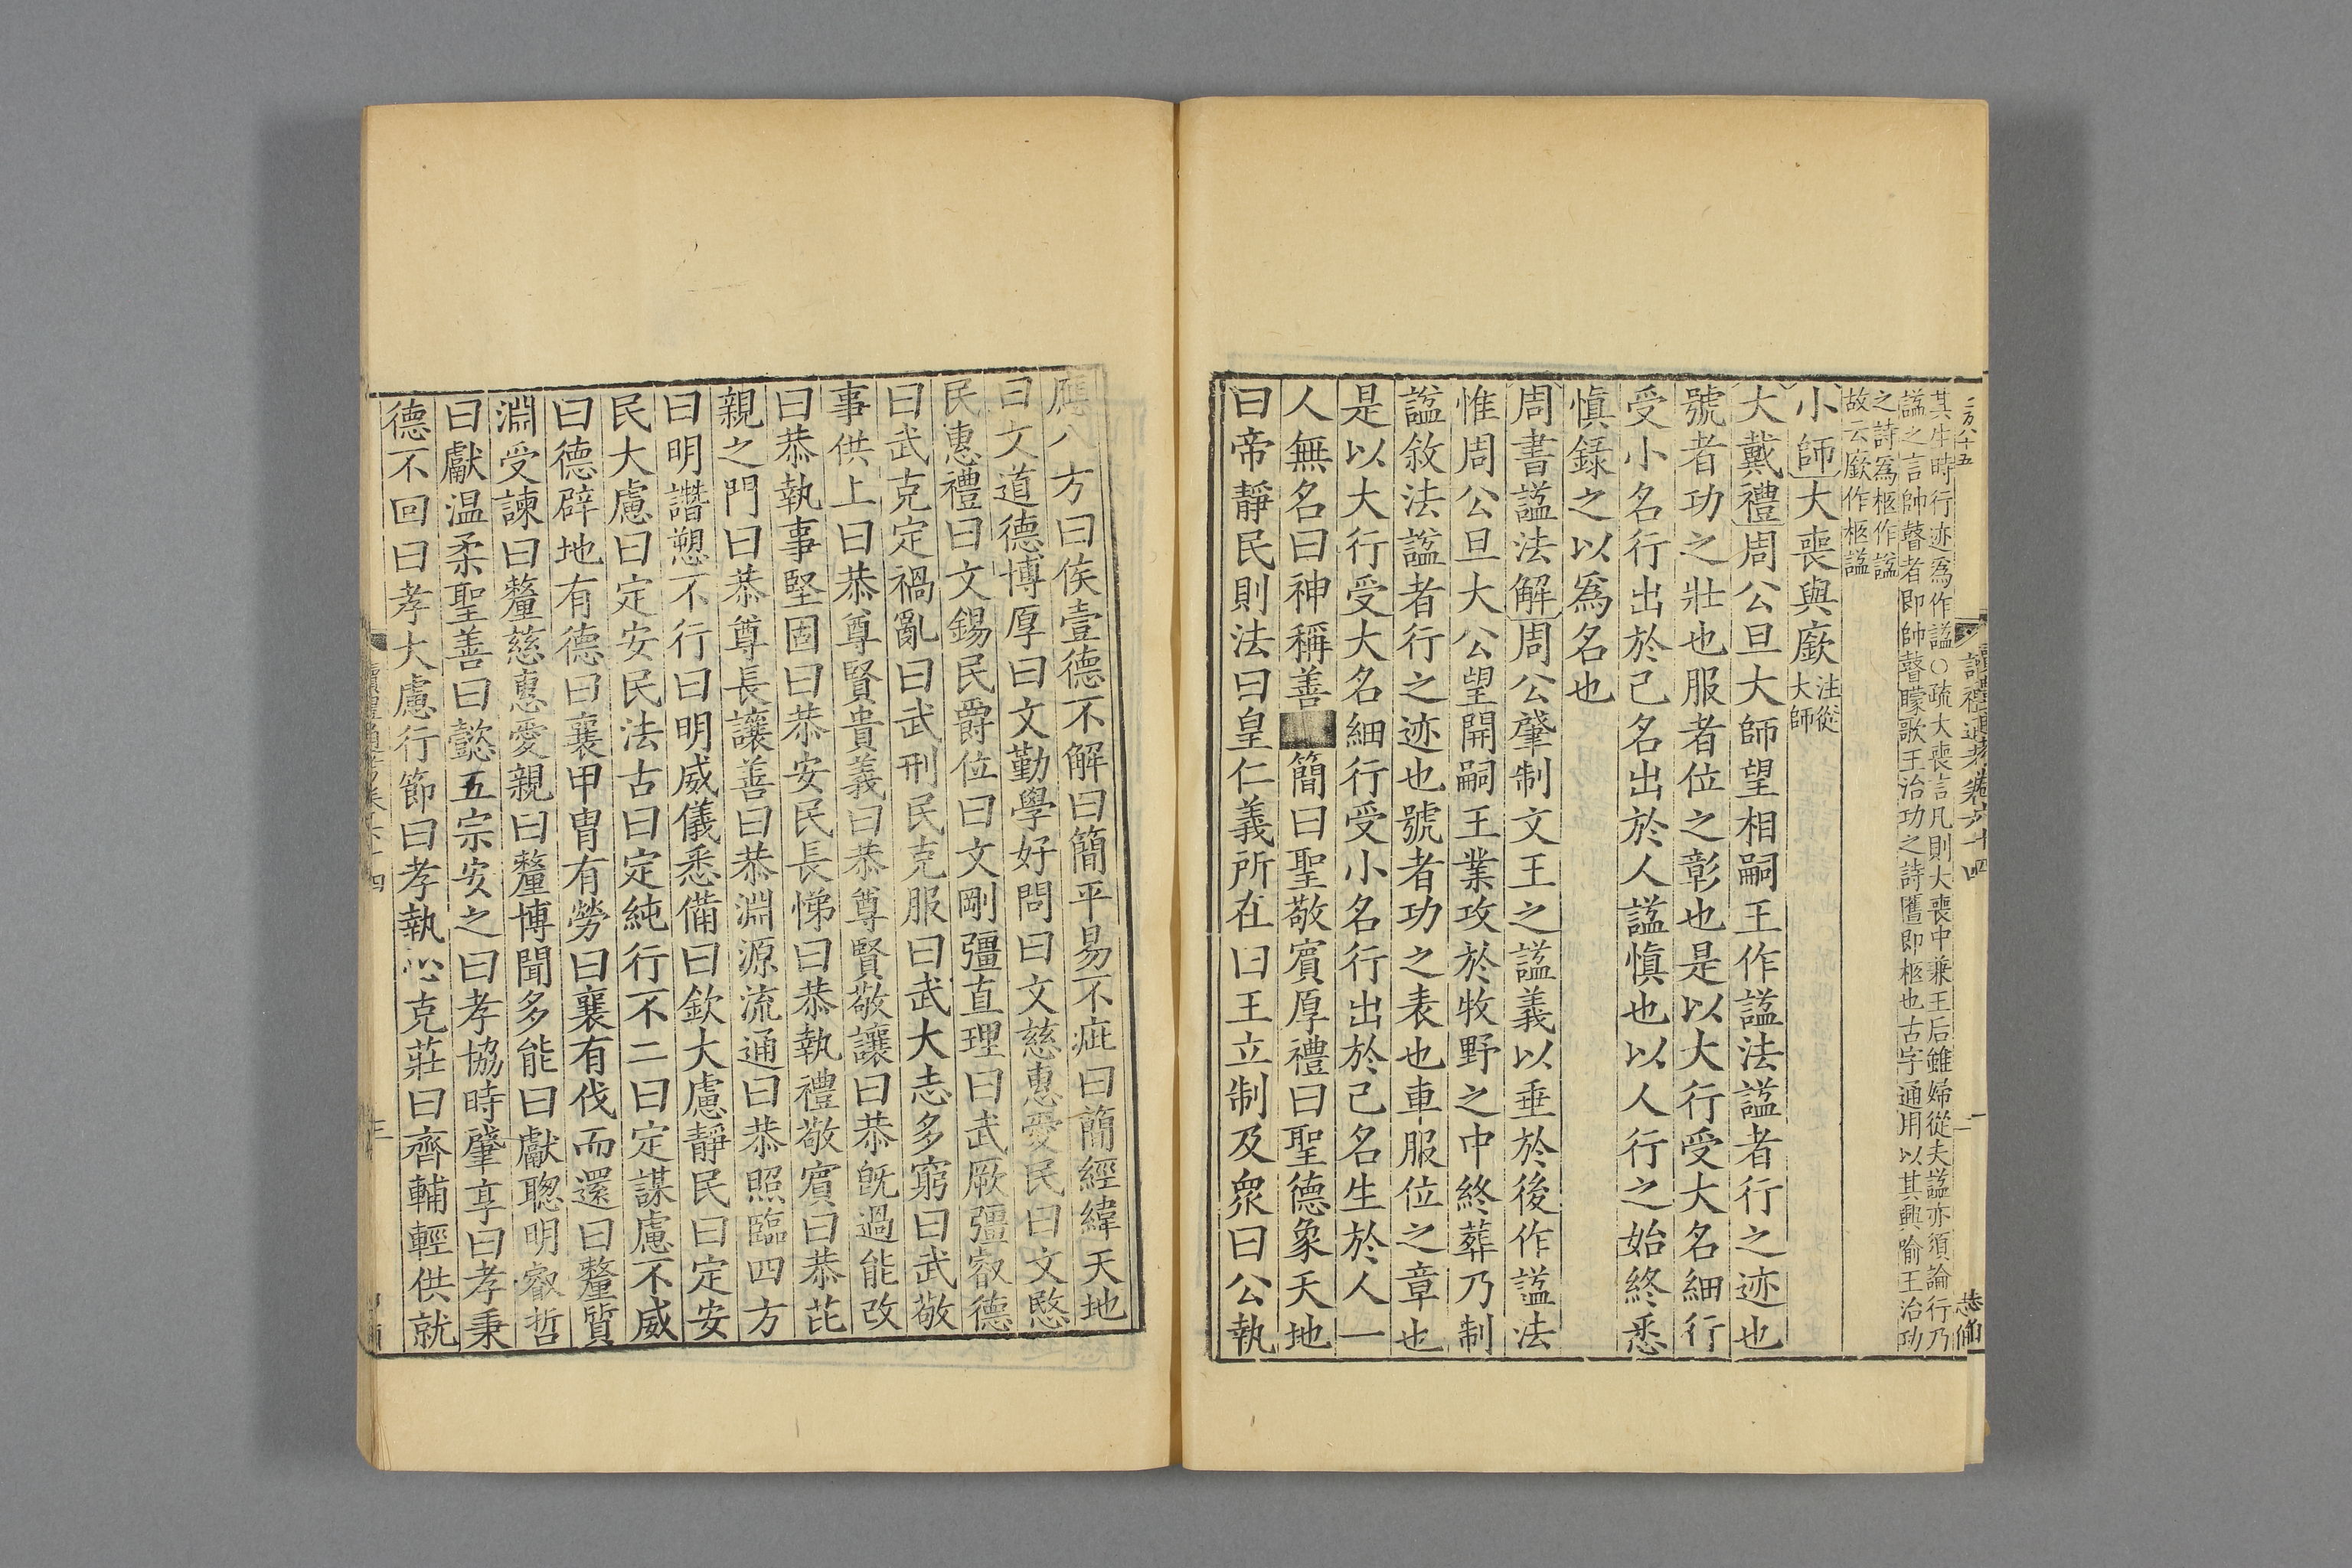 讀禮通考卷六十四
二
其生時行迹爲作諡○疏大喪言凡則大喪中兼王后雖婦從夫諡亦須論行乃
諡之言帥瞽者即帥瞽矇歌王治功之詩廞即柩也古字通用以其興喻王治功
之詩爲柩作諡
故云廞作柩諡
小師大喪與廞
注從
大師
大戴禮周公旦大師望相嗣王作諡法諡者行之迹也
號者功之壯也服者位之彰也是以大行受大名細行
受小名行出於己名出於人諡愼也以人行之始終悉
愼錄之以爲名也
周書諡法解周公肇制文王之諡義以垂於後作諡法
惟周公旦大公望開嗣王業攻於牧野之中終葬乃制
諡敘法諡者行之迹也號者功之表也車服位之章也
是以大行受大名細行受小名行出於己名生於人一
人無名曰神稱善簡曰聖敬賓厚禮曰聖德象天地
曰帝靜民則法曰皇仁義所在曰王立制及衆曰公執
應八方曰侯壹德不解曰簡平易不疵曰簡經緯天地
曰文道德博厚曰文勤學好問曰文慈惠愛民曰文愍
民惠禮曰文錫民爵位曰文剛彊直理曰武厥彊叡德
曰武克定禍亂曰武刑民克服曰武大志多窮曰武敬
事供上曰恭尊賢貴義曰恭尊賢敬讓曰恭旣過能改
曰恭執事堅固曰恭安民長悌曰恭執禮敬賓曰恭芘
親之門曰恭尊長讓善曰恭淵源流通曰恭照臨四方
曰明譖愬不行曰明威儀悉備曰欽大慮靜民曰定安
民大慮曰定安民法古曰定純行不二曰定謀慮不威
曰德辟地有德曰襄甲冑有勞曰襄有伐而還曰釐質
淵受諫曰釐慈惠愛親曰釐博聞多能曰獻聦明叡哲
曰獻温柔聖善曰懿五宗安之曰孝協時肇享曰孝秉
德不回曰孝大慮行節曰孝執心克莊曰齊輔輕供就
三